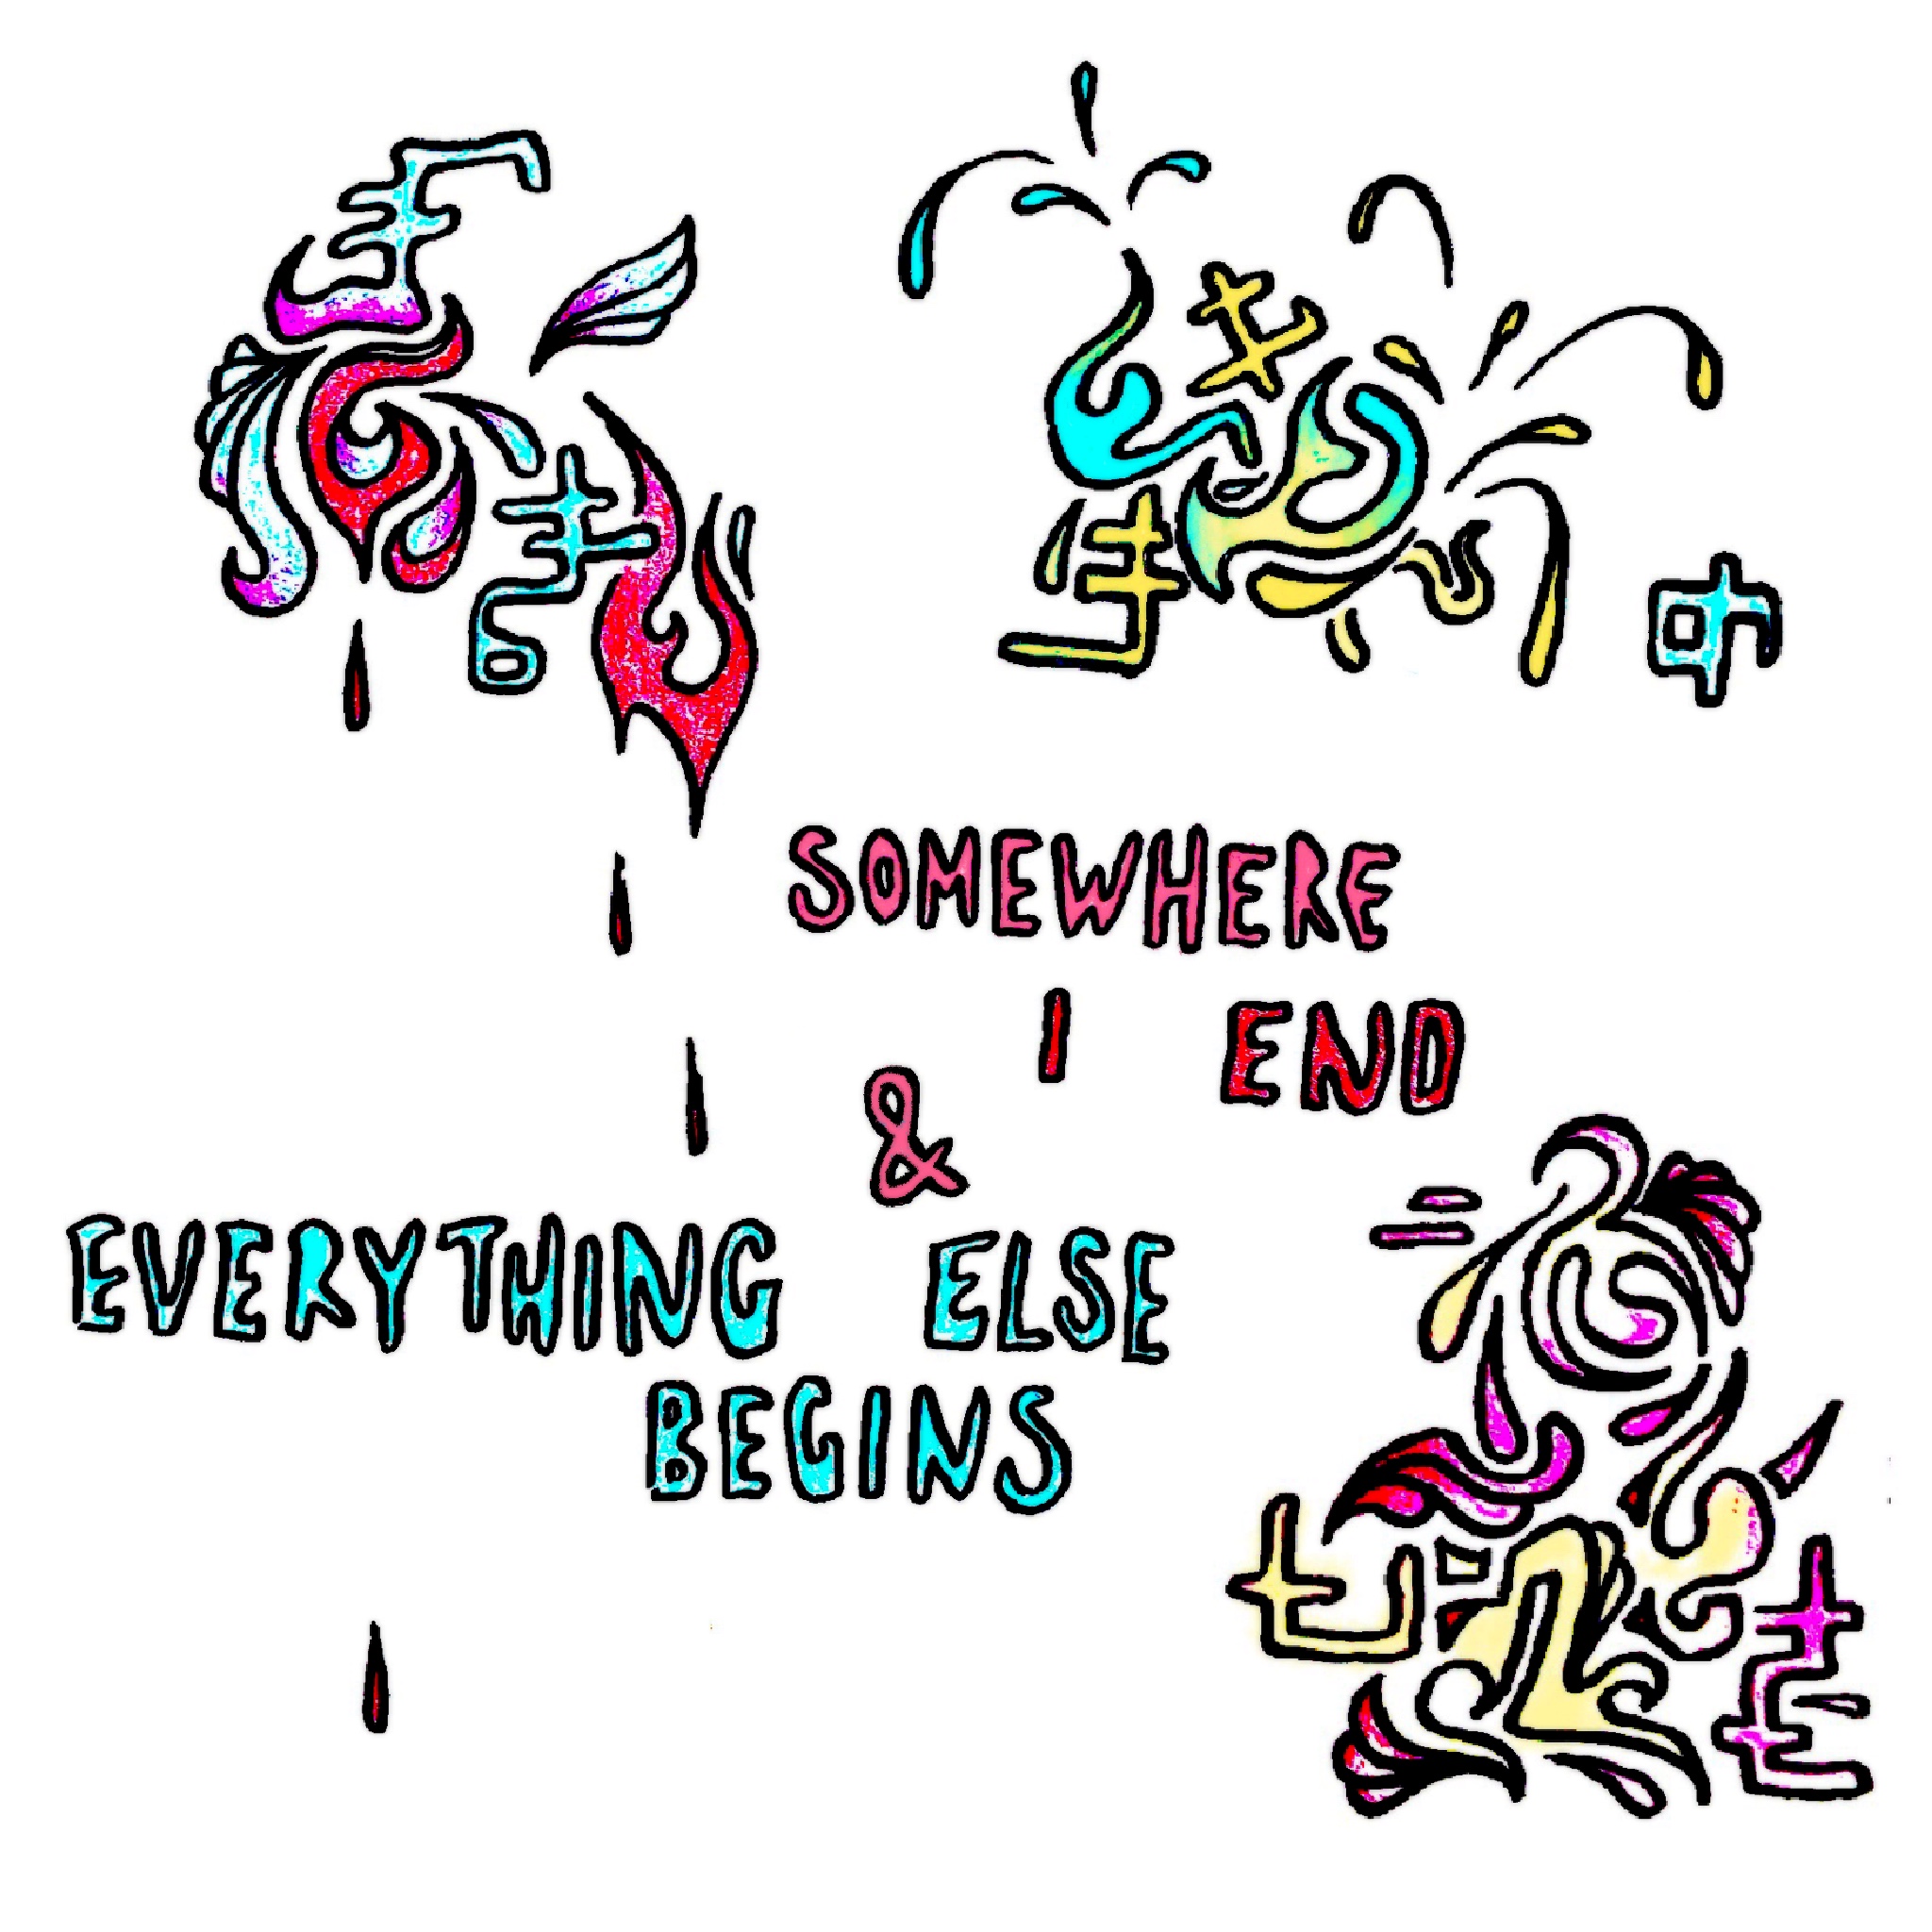 SOMEWHERE
I END
&
EVERYTHING ELSE
BEGINS